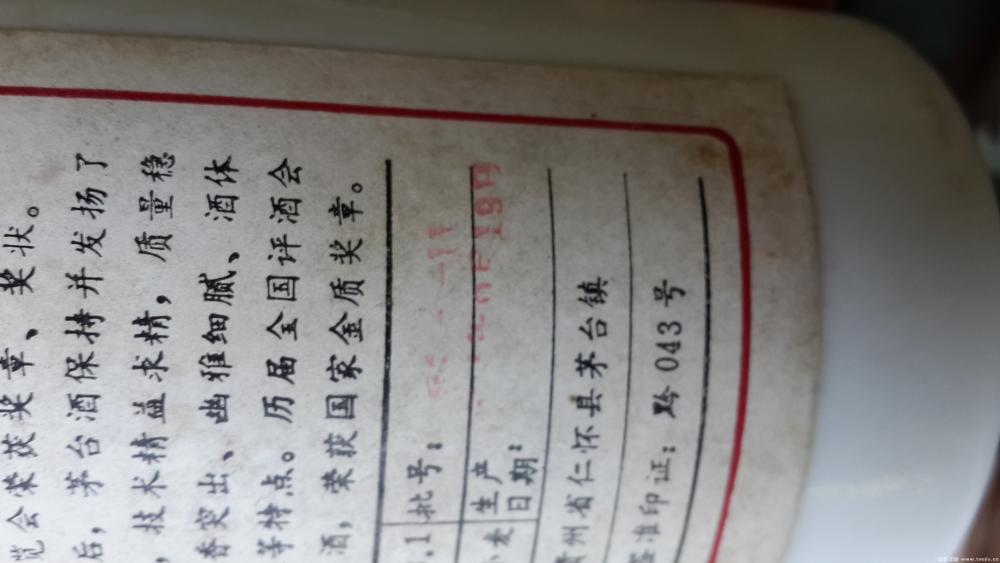 览会荣获奖章、奖状。
后，茅台酒保持并发扬了
，技术精益求精，质量稳
香突出、幽雅细腻、酒体
等特点。历届全国评酒会
酒，荣获国家金质奖章。
.1 批号：
小麦 生产日期：
贵州省仁怀县茅台镇
签准印证：黔043号